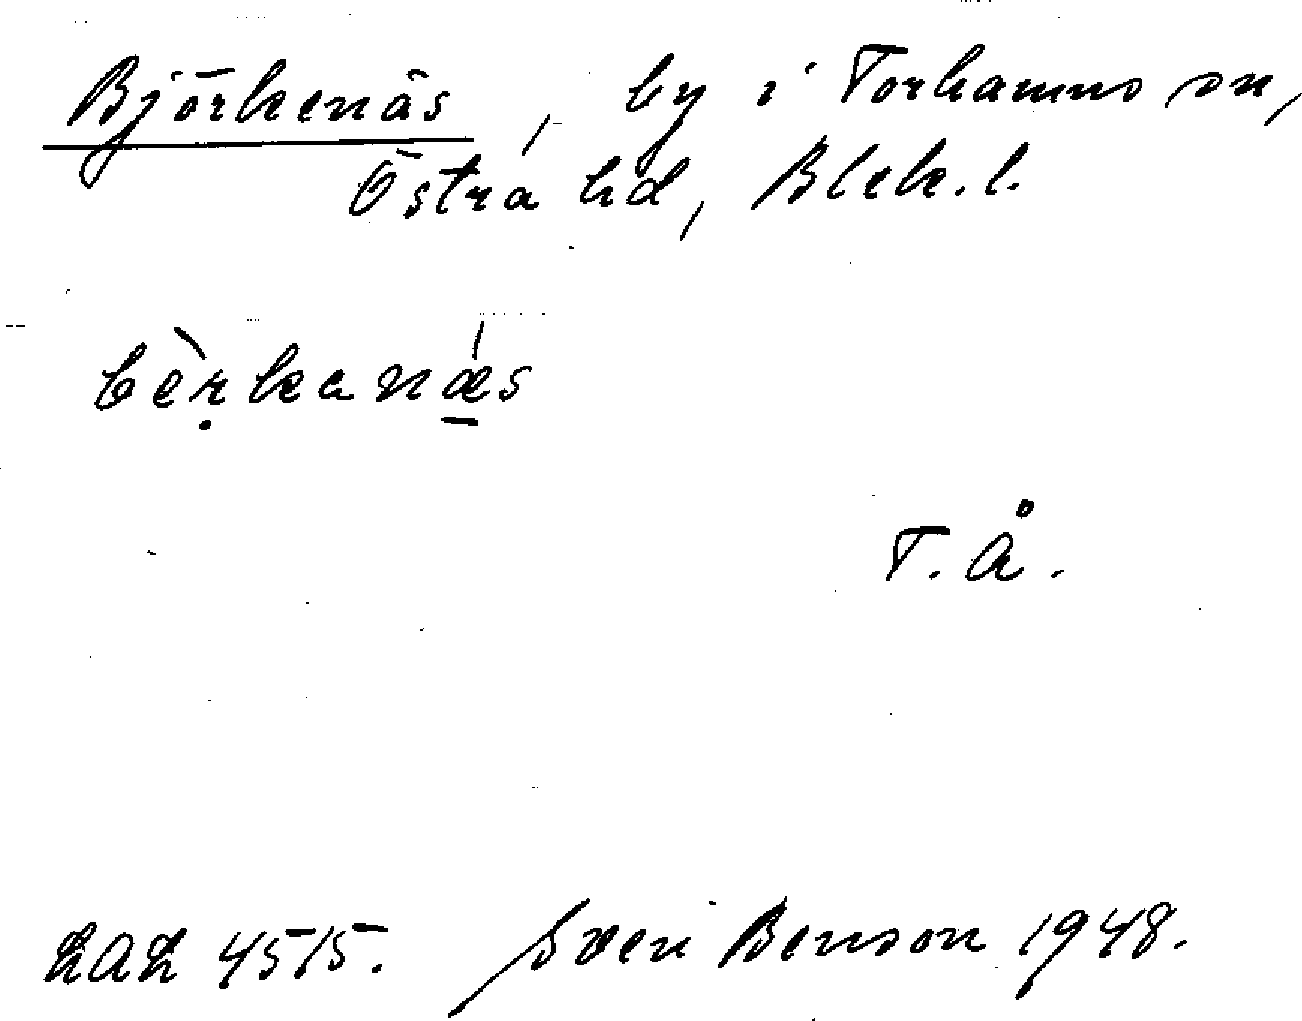 Björkenäs, by i Torhamns sn,
Östra hd, Blek. l.
bèrkanǽs
T. Å.
LAL 4515. Sven Benson 1948.